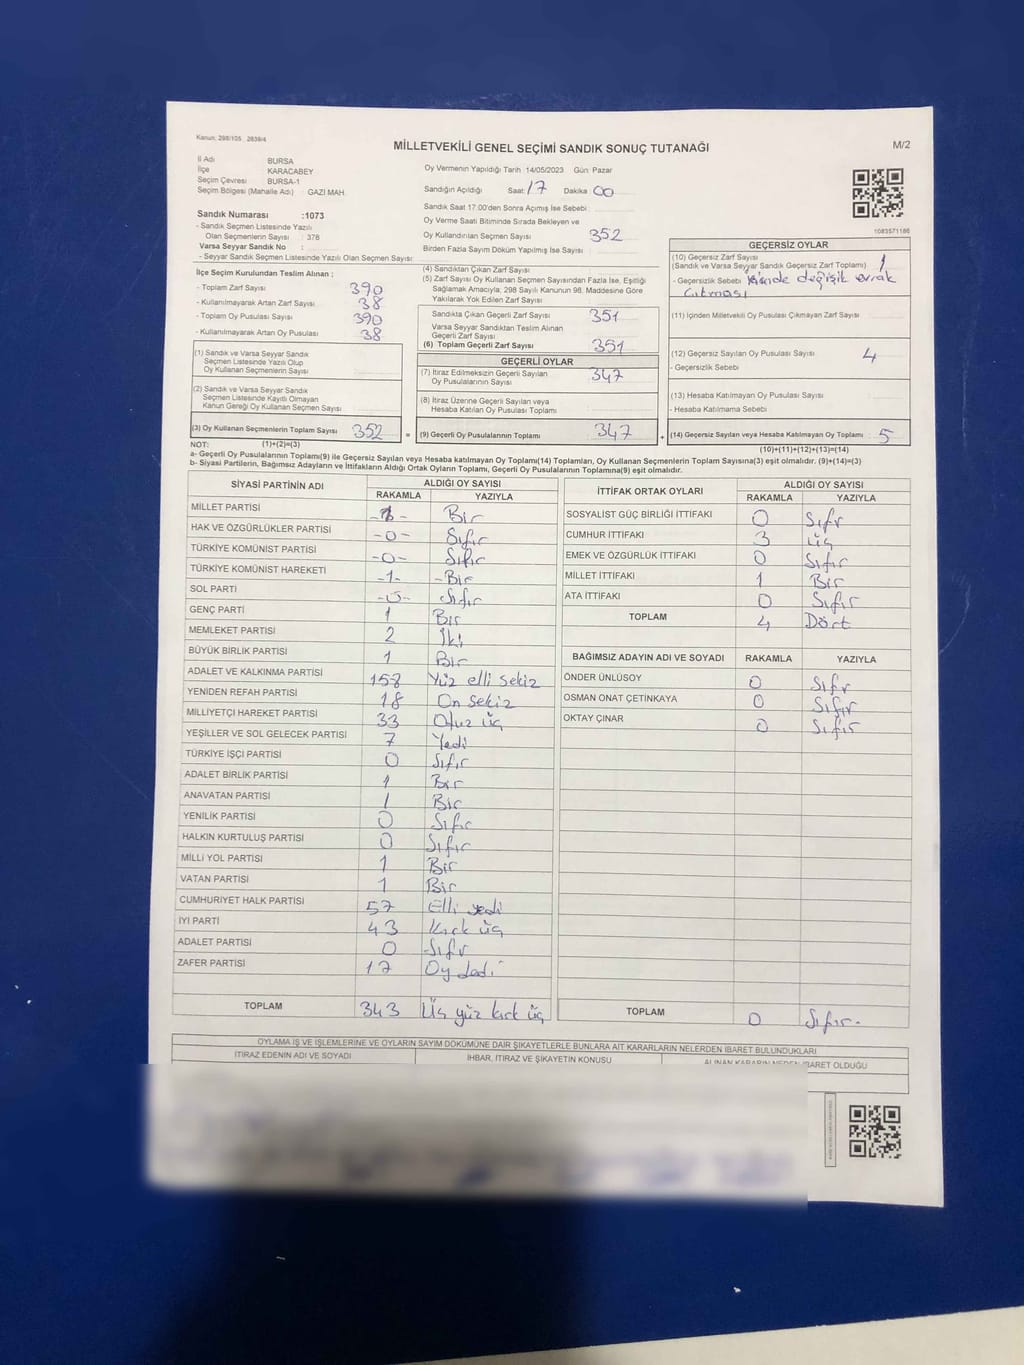 Kanun: 298/105 2839/4
MİLLETVEKİLİ GENEL SEÇİMİ SANDIK SONUÇ TUTANAĞI
M/2
İl Adı BURSA
İlçe KARACABEY
Seçim Çevresi BURSA-1
Seçim Bölgesi (Mahalle Adı) : GAZİ MAH.
Oy Vermenin Yapıldığı Tarih :14/05/2023 Gün: Pazar
Sandığın Açıldığı Saat: 17 Dakika 00
Sandık Saat 17:00'den Sonra Açılmış İse Sebebi :
Oy Verme Saati Bitiminde Sırada Bekleyen ve
Oy Kullandırılan Seçmen Sayısı 352
Birden Fazla Sayım Döküm Yapılmış İse Sayısı :
Sandık Numarası :1073
- Sandık Seçmen Listesinde Yazılı
Olan Seçmenlerin Sayısı : 378
Varsa Seyyar Sandık No :
- Seyyar Sandık Seçmen Listesinde Yazılı Olan Seçmen Sayısı:
1083571186
İlçe Seçim Kurulundan Teslim Alınan ;
- Toplam Zarf Sayısı 390
- Kullanılmayarak Artan Zarf Sayısı 38
- Toplam Oy Pusulası Sayısı 390
- Kullanılmayarak Artan Oy Pusulası 38
(1) Sandık ve Varsa Seyyar Sandık
Seçmen Listesinde Yazılı Olup
Oy Kullanan Seçmenlerin Sayısı
(2) Sandık ve Varsa Seyyar Sandık
Seçmen Listesinde Kayıtlı Olmayan
Kanun Gereği Oy Kullanan Seçmen Sayısı
(3) Oy Kullanan Seçmenlerin Toplam Sayısı 352
(4) Sandıktan Çıkan Zarf Sayısı
(5) Zarf Sayısı Oy Kullanan Seçmen Sayısından Fazla İse, Eşitliği
Sağlamak Amacıyla; 298 Sayılı Kanunun 98. Maddesine Göre
Yakılarak Yok Edilen Zarf Sayısı
Sandıkta Çıkan Geçerli Zarf Sayısı 351
Varsa Seyyar Sandıktan Teslim Alınan
Geçerli Zarf Sayısı
(6) Toplam Geçerli Zarf Sayısı 351
GEÇERLİ OYLAR
(7) İtiraz Edilmeksizin Geçerli Sayılan
Oy Pusulalarının Sayısı 347
(8) İtiraz Üzerine Geçerli Sayılan veya
Hesaba Katılan Oy Pusulası Toplamı
= (9) Geçerli Oy Pusulalarının Toplamı 347
GEÇERSİZ OYLAR
(10) Geçersiz Zarf Sayısı
(Sandık ve Varsa Seyyar Sandık Geçersiz Zarf Toplamı) 1
- Geçersizlik Sebebi değişik evrak
çıkması
(11) İçinden Milletvekili Oy Pusulası Çıkmayan Zarf Sayısı
(12) Geçersiz Sayılan Oy Pusulası Sayısı 4
- Geçersizlik Sebebi
(13) Hesaba Katılmayan Oy Pusulası Sayısı
- Hesaba Katılmama Sebebi
+ (14) Geçersiz Sayılan veya Hesaba Katılmayan Oy Toplamı 5
NOT: (1)+(2)=(3)
(10)+(11)+(12)+(13)=(14)
a- Geçerli Oy Pusulalarının Toplamı(9) ile Geçersiz Sayılan veya Hesaba katılmayan Oy Toplamı(14) Toplamları, Oy Kullanan Seçmenlerin Toplam Sayısına(3) eşit olmalıdır. (9)+(14)=(3)
b- Siyasi Partilerin, Bağımsız Adayların ve İttifakların Aldığı Ortak Oyların Toplamı, Geçerli Oy Pusulalarının Toplamına(9) eşit olmalıdır.
SİYASİ PARTİNİN ADI ALDIĞI OY SAYISI
RAKAMLA YAZIYLA
MİLLET PARTİSİ -1- Bir
HAK VE ÖZGÜRLÜKLER PARTİSİ -0- Sıfır
TÜRKİYE KOMÜNİST PARTİSİ -0- Sıfır
TÜRKİYE KOMÜNİST HAREKETİ -1- -Bir
SOL PARTİ -0- Sıfır
GENÇ PARTİ 1 Bir
MEMLEKET PARTİSİ 2 İki
BÜYÜK BİRLİK PARTİSİ 1 Bir
ADALET VE KALKINMA PARTİSİ 158 Yüz elli sekiz
YENİDEN REFAH PARTİSİ 18 On sekiz
MİLLİYETÇİ HAREKET PARTİSİ 33 Otuz üç
YEŞİLLER VE SOL GELECEK PARTİSİ 7 Yedi
TÜRKİYE İŞÇİ PARTİSİ 0 Sıfır
ADALET BİRLİK PARTİSİ 1 Bir
ANAVATAN PARTİSİ 1 Bir
YENİLİK PARTİSİ 0 Sıfır
HALKIN KURTULUŞ PARTİSİ 0 Sıfır
MİLLİ YOL PARTİSİ 1 Bir
VATAN PARTİSİ 1 Bir
CUMHURİYET HALK PARTİSİ 57 Elli yedi
İYİ PARTİ 43 Kırk üç
ADALET PARTİSİ 0 Sıfr
ZAFER PARTİSİ 17
TOPLAM 343 Üç yüz kırk üç
İTTİFAK ORTAK OYLARI ALDIĞI OY SAYISI
RAKAMLA YAZIYLA
SOSYALİST GÜÇ BİRLİĞİ İTTİFAKI 0 Sıfr
CUMHUR İTTİFAKI 3 üç
EMEK VE ÖZGÜRLÜK İTTİFAKI 0 Sıfır
MİLLET İTTİFAKI 1 Bir
ATA İTTİFAKI 0 Sıfır
TOPLAM 4 Dört
BAĞIMSIZ ADAYIN ADI VE SOYADI RAKAMLA YAZIYLA
ÖNDER ÜNLÜSOY 0 Sıfr
OSMAN ONAT ÇETİNKAYA 0 Sıfır
OKTAY ÇINAR 0 Sıfır
TOPLAM 0 Sıfır.
OYLAMA İŞ VE İŞLEMLERİNE VE OYLARIN SAYIM DÖKÜMÜNE DAİR ŞİKAYETLERLE BUNLARA AİT KARARLARIN NELERDEN İBARET BULUNDUKLARI
İTİRAZ EDENİN ADI VE SOYADI İHBAR, İTİRAZ VE ŞİKAYETİN KONUSU ALINAN KARARIN NEDEN İBARET OLDUĞU